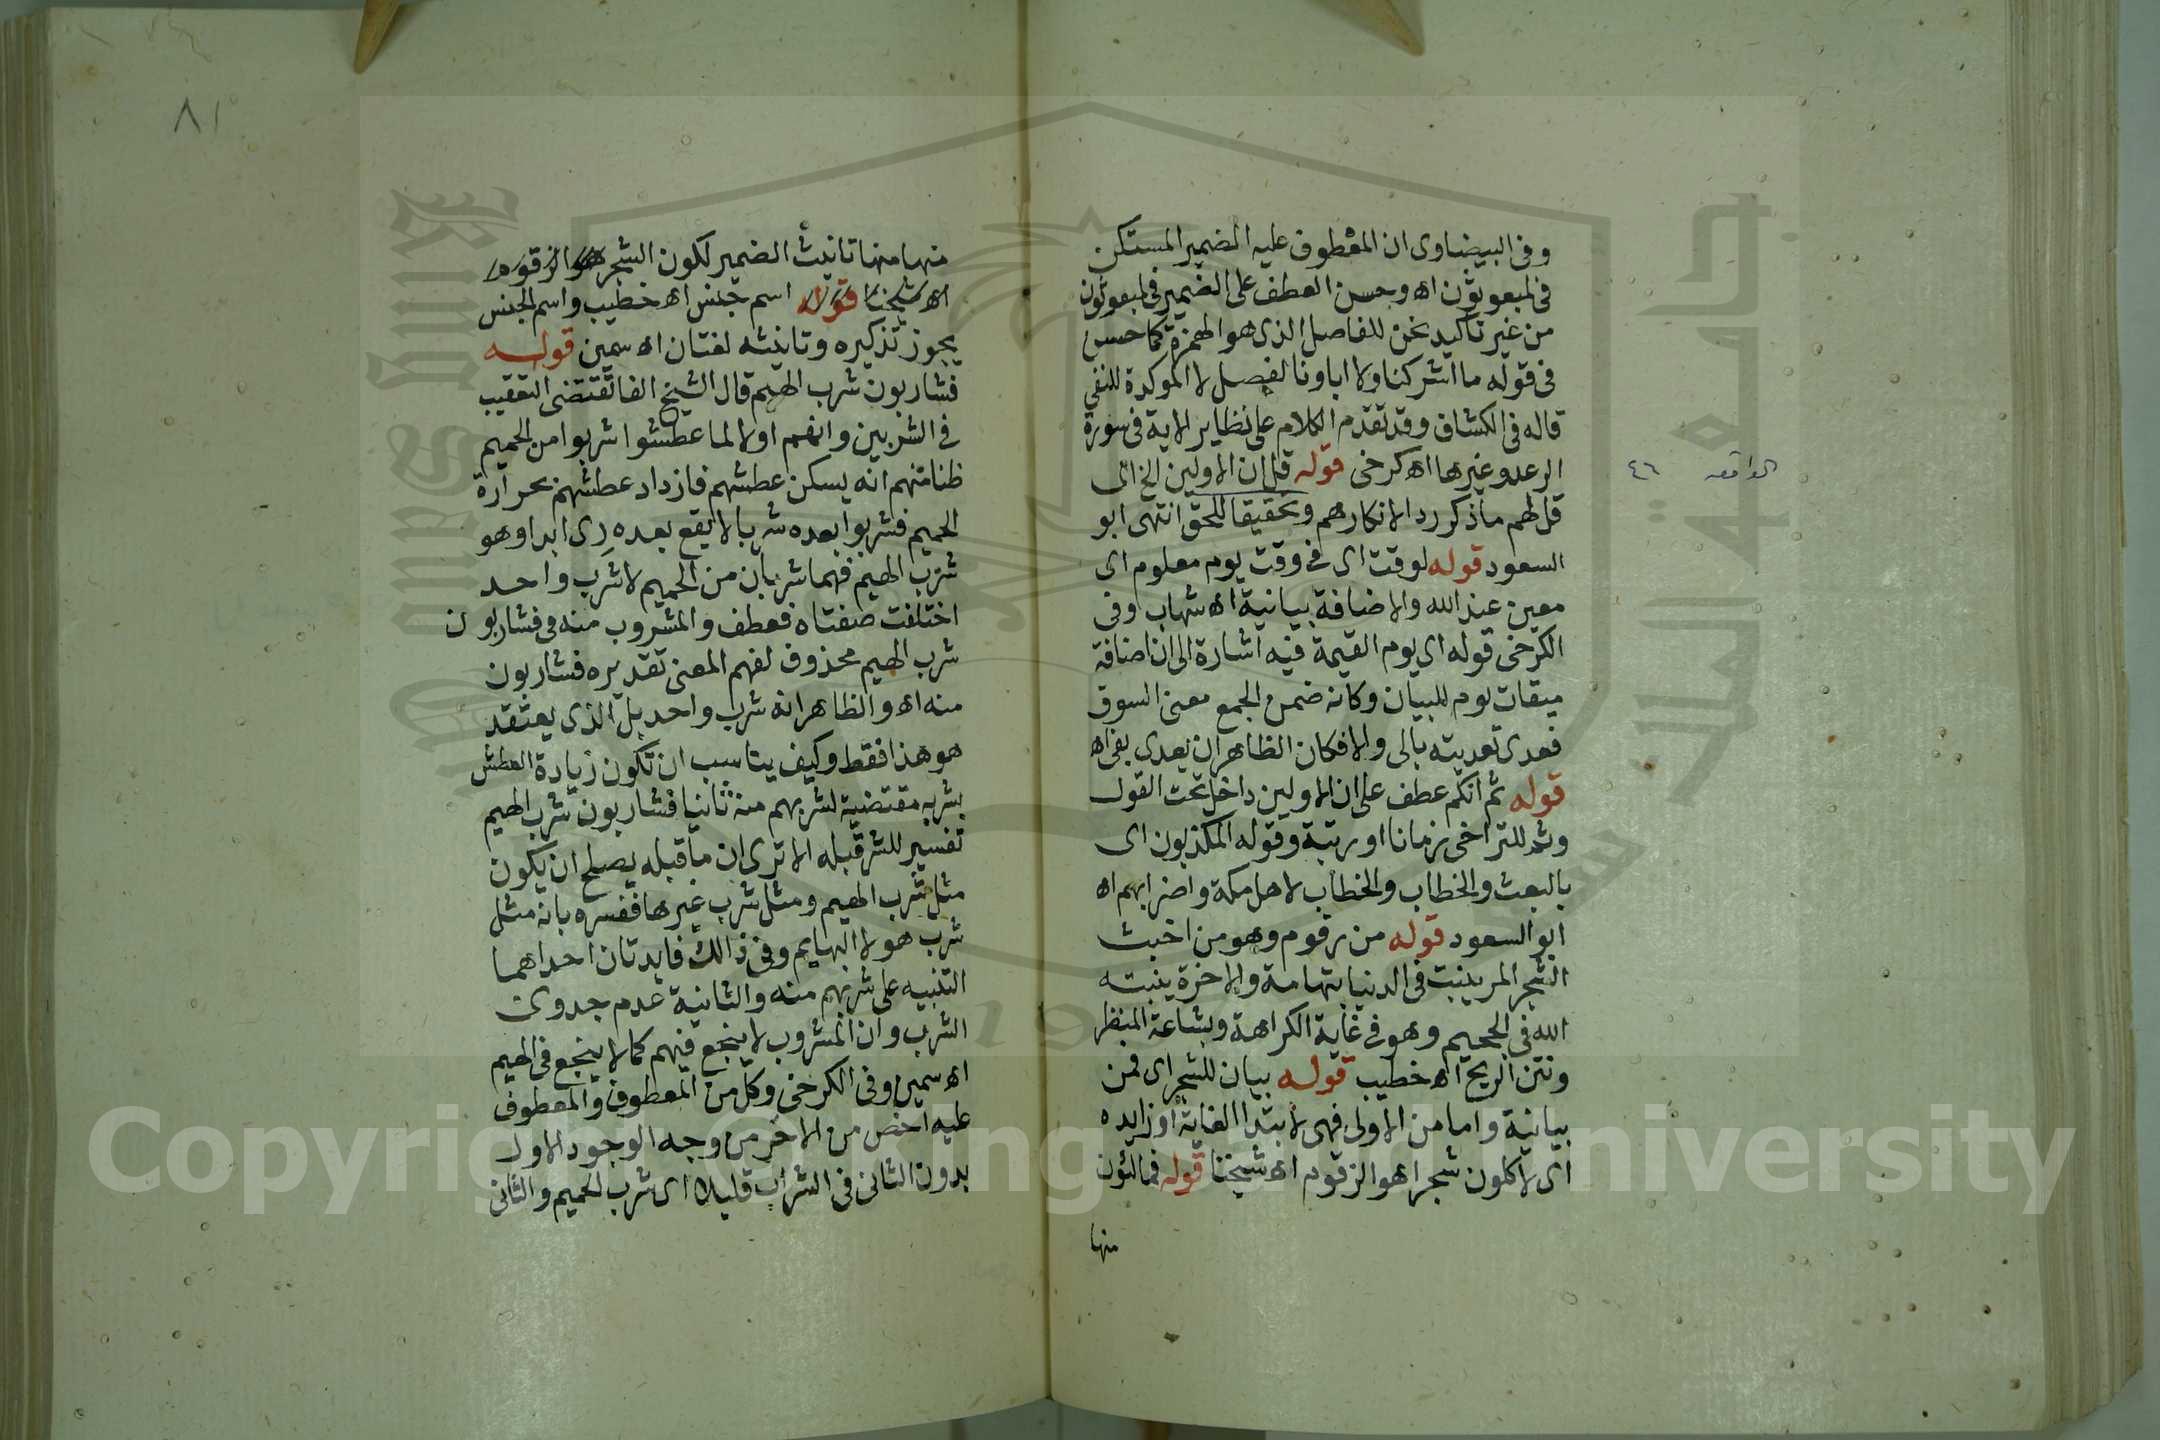 وفى البيضاوى ان المعطوف عليه الضمير المستكن
فى لمبعوثون اه وحسن العطف على الضمير فى لمبعوثون
من غير تاكيد بنحن للفاصل الذى هو الهمزة كما حسن
فى قوله ما اشركنا ولا اباونا لفصل لا الموكدة للنفى
قاله فى الكشاف وقد تقدم الكلام على نظاير الاية فى سورة
الرعد وغيرها اه كرخى قوله قل ان الاولين الخ اى
الواقعه ٤٦
قل لهم ما ذكر ردا لانكارهم وتحقيقا للحق انتهى ابو
السعود قوله لوقت اى فى وقت يوم معلوم اى
معين عند الله والاضافة بيانية اه شهاب وفى
الكرخى قوله اى يوم القيمة فيه اشارة الى ان اضافة
ميقات يوم للبيان وكانه ضمن الجمع معنى السوق
فعدى تعديته بالى والا فكان الظاهر ان يعدى بفى اه
قوله ثم انكم عطف على ان الاولين داخل تحت القول
وثم للتراخى زمانا او رتبة وقوله المكذبون اى
بالبعث والخطاب والخطاب لاهل مكة واضرابهم اه
ابو السعود قوله من زقوم وهو من اخبث
الشجر المر ينبت فى الدنيا بتهامة والاخرة ينبته
الله فى الجحيم وهو فى غاية الكراهة وبشاعة المنظر
ونتن الريح اه خطيب قوله بيان للشجر اى فمن
بيانية واما من الاولى فهى لابتدا الغاية او زايده
اى لاكلون شجرا هو الزقوم اه شيخنا قوله فمالئون
منها
٨١
منها منها تانيث الضمير لكون الشجر هو الزقوم
اه شيخنا قوله اسم جنس اه خطيب واسم الجنس
يجوز تذكيره وتانيثه لغتان اه سمين قوله
فشاربون شرب الهيم قال الشيخ الفا تقتضى التعقيب
فى الشربين وانهم اولا لما عطشوا شربوا من الحميم
ظنا منهم انه يسكن عطشهم فازداد عطشهم بحرارة
الحميم فشربوا بعده شربا لا يقع بعده رى ابدا وهو
شرب الهيم فهما شربان من الحميم لا شرب واحد
اختلفت صفتاه فعطف والمشروب منه فى فشاربون
شرب الهيم محذوف لفهم المعنى تقديره فشاربون
منه اه والظاهر انه شرب واحد بل الذى يعتقد
هو هذا فقط وكيف يناسب ان تكون زيادة العطش
بشربه مقتضية لشربهم منه ثانيا فشاربون شرب الهيم
تفسير للشر قبله الا ترى ان ما قبله يصلح ان يكون
مثل شرب الهيم ومثل شرب غيرها ففسره بانه مثل
شرب هولا البهايم وفى ذالك فايدتان احداهما
التنبيه على شربهم منه والثانية عدم جدوى
الشرب وان المشروب لا ينجع فيهم كما لا ينجع فى الهيم
اه سمين وفى الكرخى وكل من المعطوف والمعطوف
عليه اخص من الاخر من وجه الوجود الاول
بدون الثانى فى الشراب قليلا اى شرب الحميم والثانى